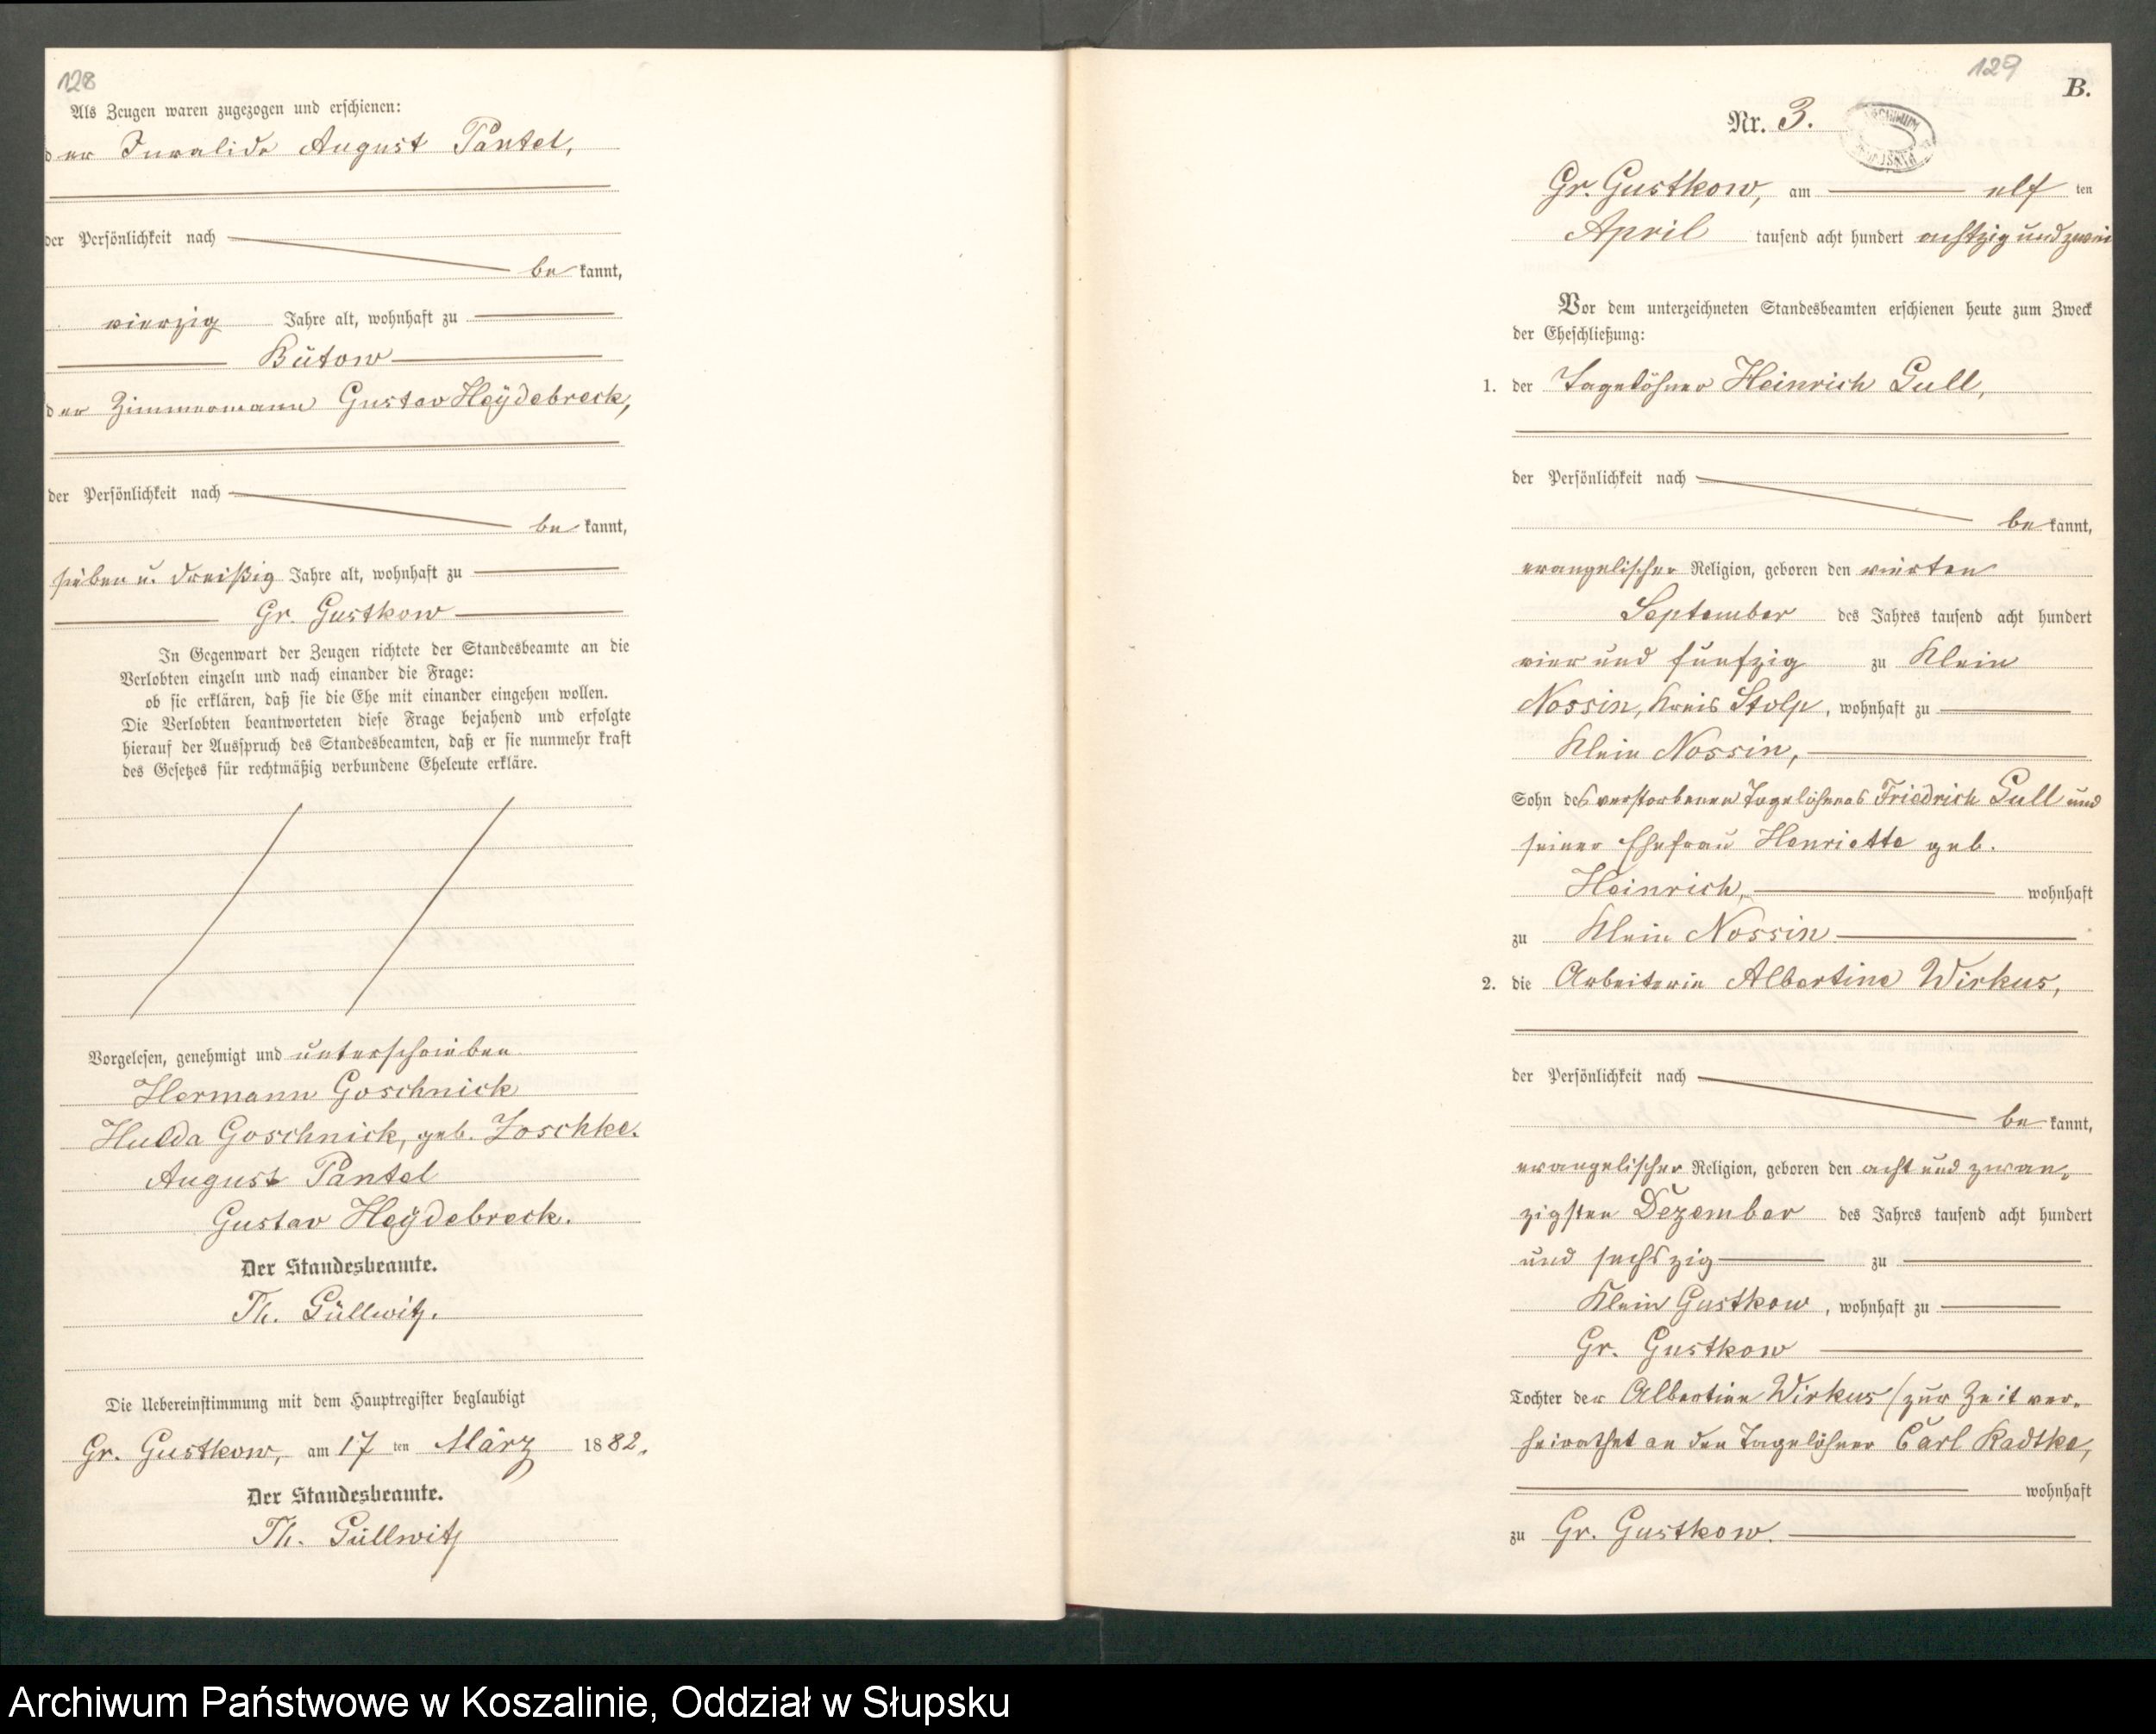 128
Als Zeugen waren zugezogen und erschienen:
der Invalide August Pantel,
der Persönlichkeit nach
be kannt,
vierzig Jahre alt, wohnhaft zu
Bütow
der Zimmermann Gustav Heÿdebreck,
der Persönlichkeit nach
be kannt,
sieben u. dreißig Jahre alt, wohnhaft zu
Gr. Gustkow
In Gegenwart der Zeugen richtete der Standesbeamte an die
Verlobten einzeln und nach einander die Frage:
ob sie erklären, daß sie die Ehe mit einander eingehen wollen.
Die Verlobten beantworteten diese Frage bejahend und erfolgte
hierauf der Ausspruch des Standesbeamten, daß er sie nunmehr kraft
des Gesetzes für rechtmäßig verbundene Eheleute erkläre.
Vorgelesen, genehmigt und unterschrieben
Hermann Goschnick
Hulda Goschnick, geb. Zoschke.
August Pantel
Gustav Heÿdebreck.
Der Standesbeamte.
Th. Güllwitz.
Die Uebereinstimmung mit dem Hauptregister beglaubigt
Gr. Gustkow, am 17 ten März 1882.
Der Standesbeamte.
Th. Güllwitz
129
B.
Nr. 3.
Gr. Gustkow, am elf ten
April tausend acht hundert achtzig und zwei
Vor dem unterzeichneten Standesbeamten erschienen heute zum Zweck
der Eheschließung:
1. der Tagelöhner Heinrich Gull,
der Persönlichkeit nach
be kannt,
evangelischer Religion, geboren den vierten
September des Jahres tausend acht hundert
vier und fünfzig zu Klein
Nossin, Kreis Stolp, wohnhaft zu
Klein Nossin,
Sohn des verstorbenen Tagelöhners Friedrich Gull und
seiner Ehefrau Henriette geb.
Heinrich, wohnhaft
zu Klein Nossin
2. die Arbeiterin Albertine Wirkus,
der Persönlichkeit nach
be kannt,
evangelischer Religion, geboren den acht und zwan-
zigsten Dezember des Jahres tausend acht hundert
und sechszig zu
Klein Gustkow, wohnhaft zu
Gr. Gustkow
Tochter der Albertine Wirkus (zur Zeit ver-
heirathet an den Tagelöhner Carl Radtke,
wohnhaft
zu Gr. Gustkow.
Archiwum Państwowe w Koszalinie, Oddział w Słupsku